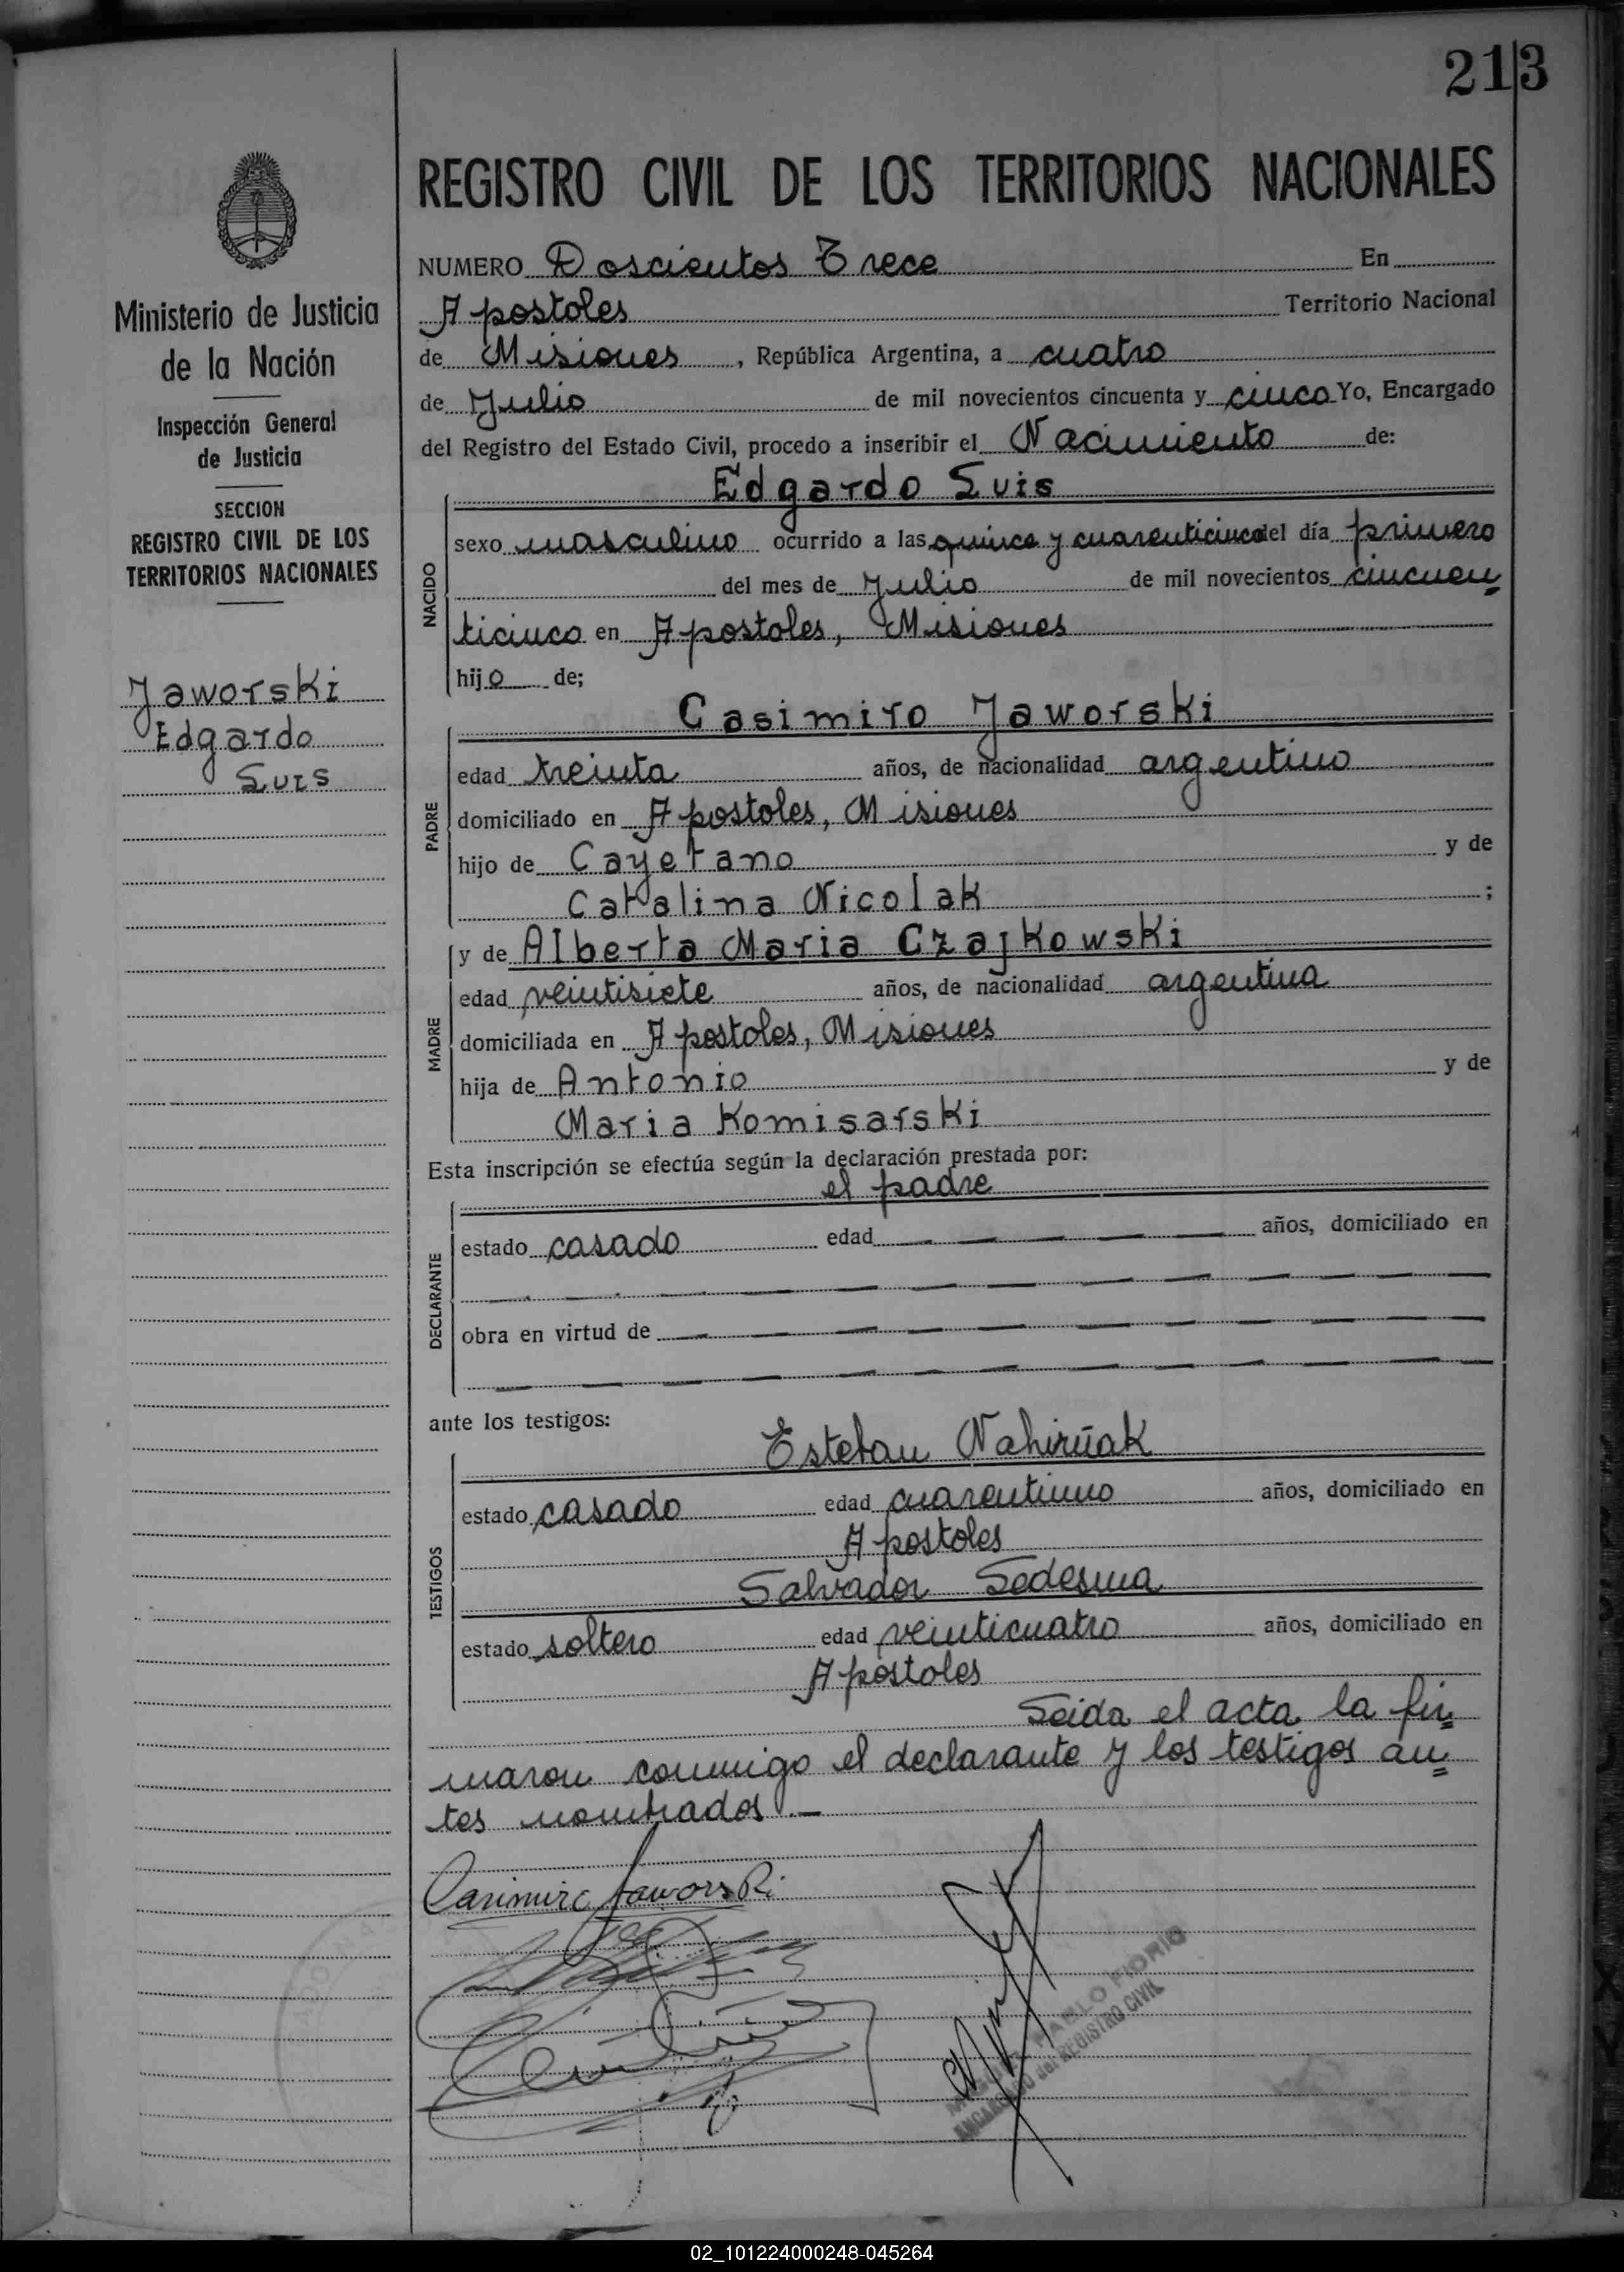 213
REGISTRO CIVIL DE LOS TERRITORIOS NACIONALES
Ministerio de Justicia
de la Nación
Inspección General
de Justicia
SECCION
REGISTRO CIVIL DE LOS
TERRITORIOS NACIONALES
Jaworski
Edgardo
Luis
NUMERO Doscientos Trece En
Apostoles Territorio Nacional
de Misiones, República Argentina, a cuatro
de Julio de mil novecientos cincuenta y cinco Yo, Encargado
del Registro del Estado Civil, procedo a inscribir el Nacimiento de:
NACIDO
Edgardo Luis
sexo masculino ocurrido a las quince y cuarenticinco del día primero
del mes de Julio de mil novecientos cincuen=
ticinco en Apostoles, Misiones
hijo de;
PADRE
Casimiro Jaworski
edad treinta años, de nacionalidad argentino
domiciliado en Apostoles, Misiones
hijo de Cayetano y de
Catalina Nicolak ;
MADRE
y de Alberta Maria Czajkowski
edad veintisiete años, de nacionalidad argentina
domiciliada en Apostoles, Misiones
hija de Antonio y de
Maria Komisarski
Esta inscripción se efectúa según la declaración prestada por:
DECLARANTE
el padre
estado casado edad años, domiciliado en
obra en virtud de
ante los testigos:
TESTIGOS
Esteban Nahirñak
estado casado edad cuarentiuno años, domiciliado en
Apostoles
Salvador Ledesma
estado soltero edad veinticuatro años, domiciliado en
Apostoles
Leida el acta la fir=
maron conmigo el declarante y los testigos an=
tes nombrados.—
Casimiro Jaworski
PABLO FIORIO
ENCARGADO del REGISTRO CIVIL
02_101224000248-045264